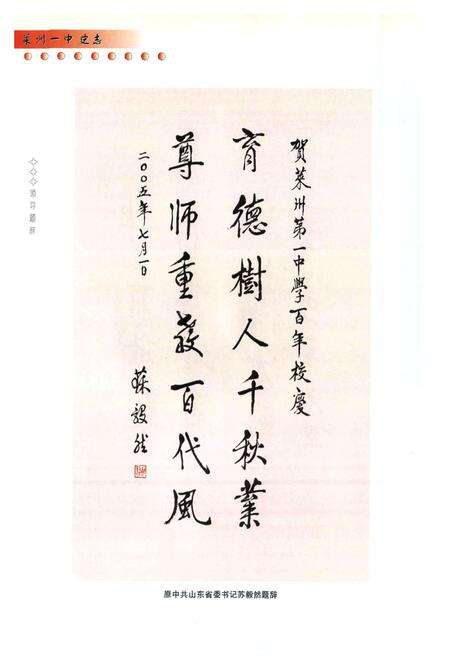 莱州一中校志
领导题辞
賀萊州第一中學百年校慶
育德樹人千秋業
尊師重教百代風
二〇〇五年七月一日
蘇毅然
原中共山东省委书记苏毅然题辞